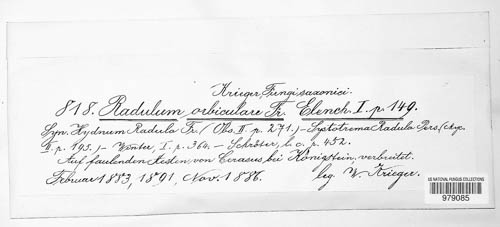 Krieger, Fungi saxonici.
818. Radulum orbiculare Fr. Elench. I. p. 149.
Syn. Hydnum Radula Fr. (Obs. II. p. 271.) – Sistotrema Radula Pers. (Myc.
II. p. 195.) – Winter, I. p. 364. – Schröter, l. c. p. 452.
Auf faulenden Aesten von Cerasus bei Königstein, verbreitet.
Februar 1883, 1891, Nov. 1886. leg. W. Krieger.
US NATIONAL FUNGUS COLLECTIONS
979085